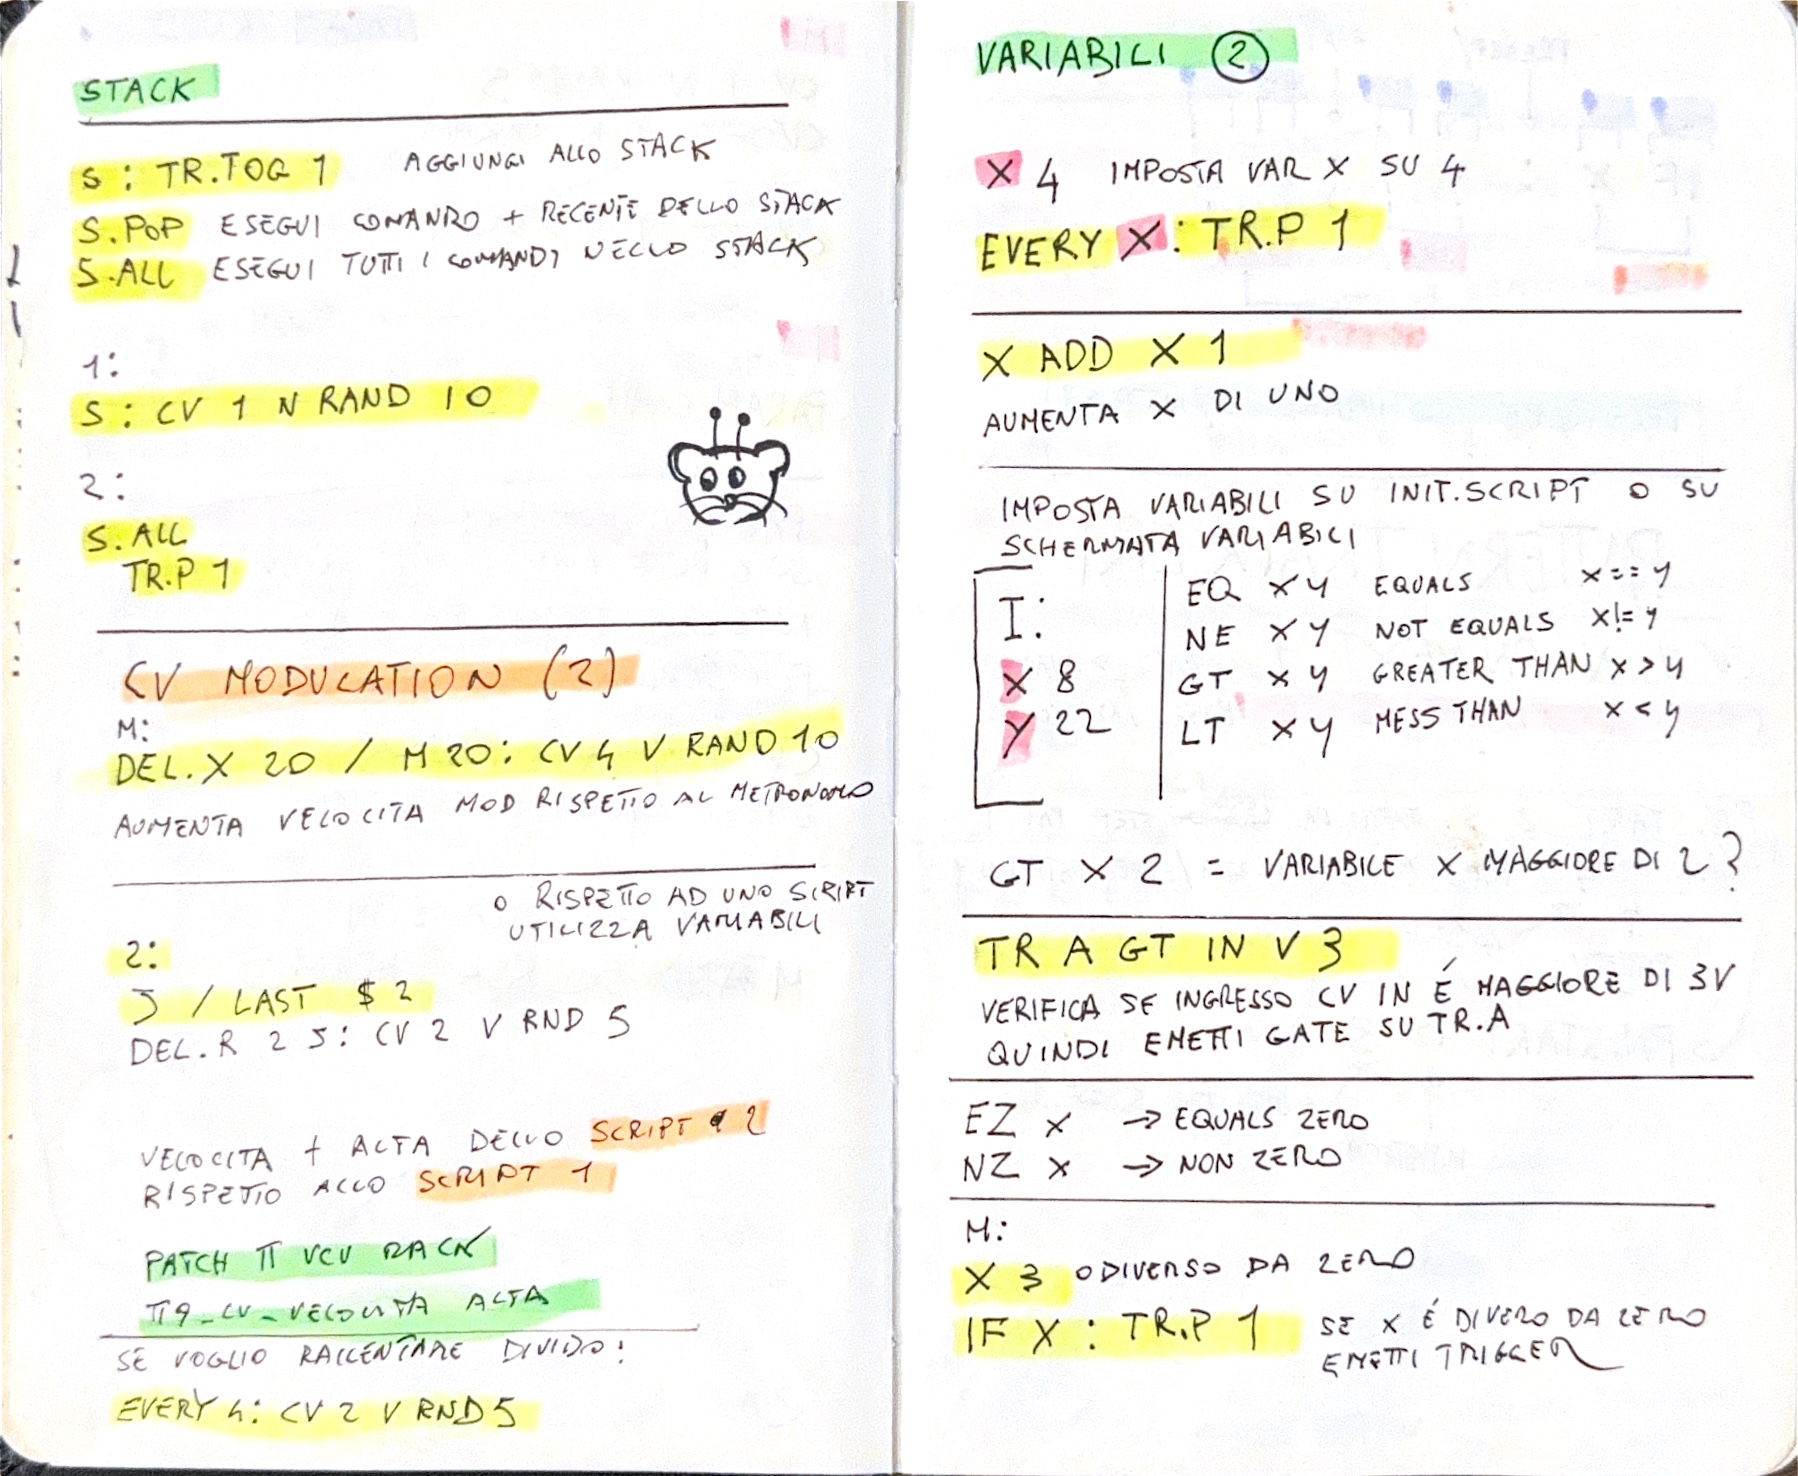 STACK
S : TR.TOG 1 AGGIUNGI ALLO STACK
S.POP ESEGUI COMANRO + RECENTE DELLO STACK
S.ALL ESEGUI TUTTI I COMANDI NELLO STACK
1:
S : CV 1 N RAND 10
2:
S.ALL
TR.P 1
CV MODULATION (2)
M:
DEL.X 20 / M 20: CV 4 V RAND 10
AUMENTA VELOCITA MOD RISPETTO AL METRONOMO
O RISPETTO AD UNO SCRIPT
UTILIZZA VARIABILI
2:
J / LAST $ 2
DEL.R 2 J: CV 2 V RND 5
VELOCITA + ALTA DELLO SCRIPT 2
RISPETTO ALLO SCRIPT 1
PATCH TT VCV RACK
TT9_CV_VELOCITA ALTA
SE VOGLIO RALLENTARE DIVIDO:
EVERY 4: CV 2 V RND 5
VARIABILI 2
X 4 IMPOSTA VAR X SU 4
EVERY X: TR.P 1
X ADD X 1
AUMENTA X DI UNO
IMPOSTA VARIABILI SU INIT.SCRIPT O SU
SCHERMATA VARIABILI
I:
X 8
Y 22
EQ X Y EQUALS X == Y
NE X Y NOT EQUALS X != Y
GT X Y GREATER THAN X > Y
LT X Y MESS THAN X < Y
GT X 2 = VARIABILE X MAGGIORE DI 2?
TR A GT IN V 3
VERIFICA SE INGRESSO CV IN É MAGGIORE DI 3V
QUINDI EMETTI GATE SU TR.A
EZ X → EQUALS ZERO
NZ X → NON ZERO
M:
X 3 O DIVERSO DA ZERO
IF X : TR.P 1 SE X É DIVERO DA ZERO
EMETTI TRIGGER